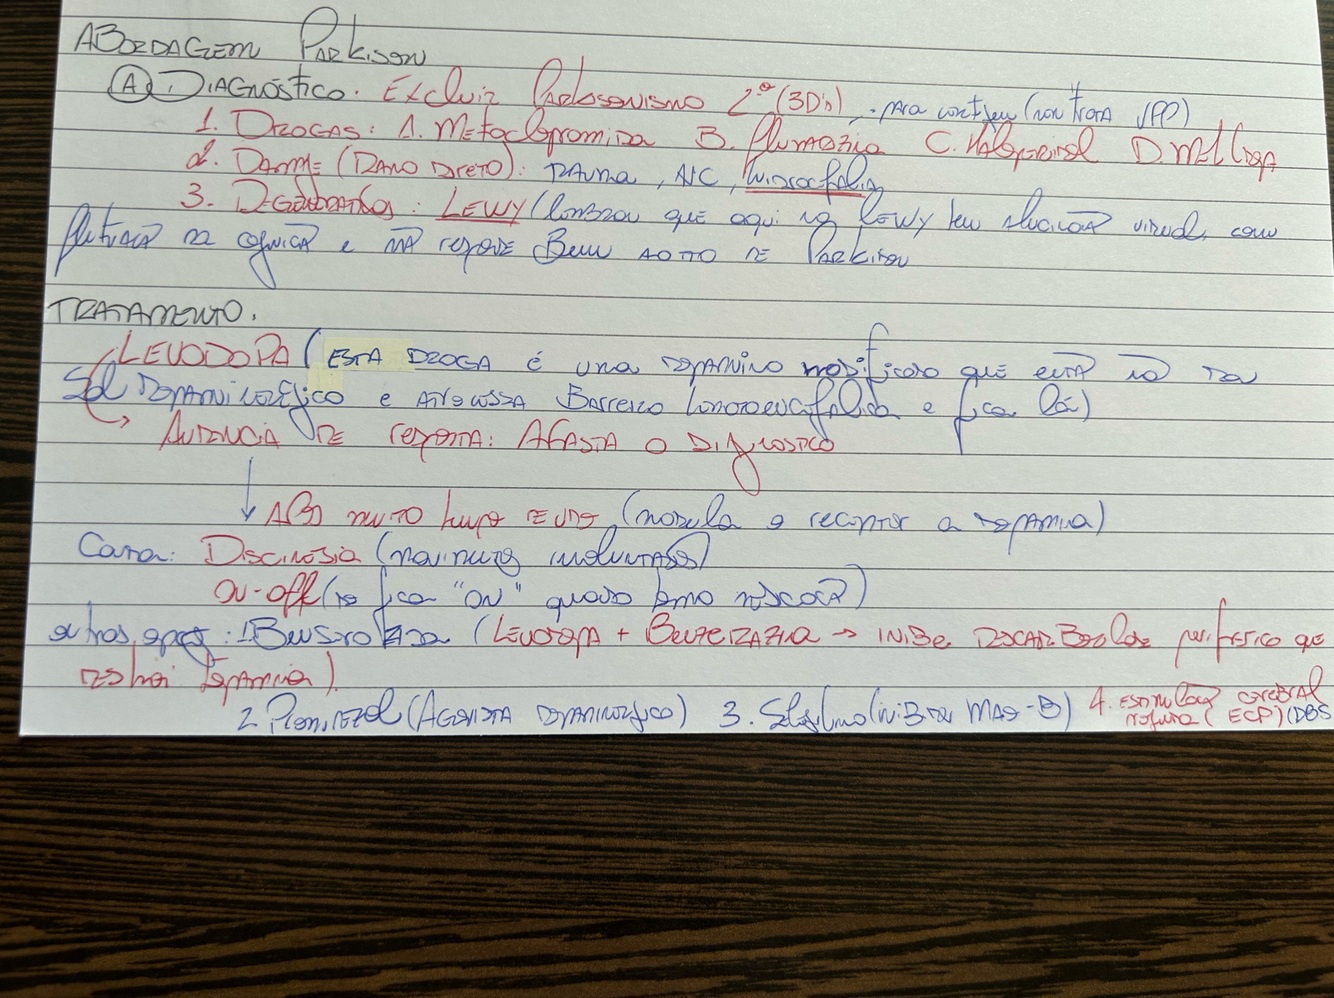 ABORDAGEM PARKISON
A. DIAGNÓSTICO. Excluir Parkisonismo 2º (3D's)
1. DROGAS: A. Metoclopramida B. Flunarizina C. Haloperidol D.
2. Damme (DANO DIRETO): TRAUMA, AVC, hidrocefalia
3. DEGENERATIVAS: LEWY (lembrar que aqui no LEWY tem alucinação visual, com
flutuação da cognição e não responde Bem AO TTO DE PARKISON
TRATAMENTO.
LEVODOPA (ESTA DROGA é uma dopamina modificada que então na
e atravessa Barreira hematoencefálica e fica lá)
AUSENCIA DE resposta: AFASTA O DIAGNOSTICO
muito tempo DE USO (modula o receptor a dopamina)
Causa: Discinesia (movimentos involuntários)
ON-OFF (só fica "ON" quando toma medicação)
outras opções: 1. (LEVODOPA + BENSERAZIDA → INIBE DESCARBOXILASE periferico que
destroi dopamina).
2. Pramipexol (AGONISTA dopaminérgico) 3. Selegilina (iniBidor MAO-B) 4. ESTIMULAÇÃO CEREBRAL
profunda (ECP) (DBS